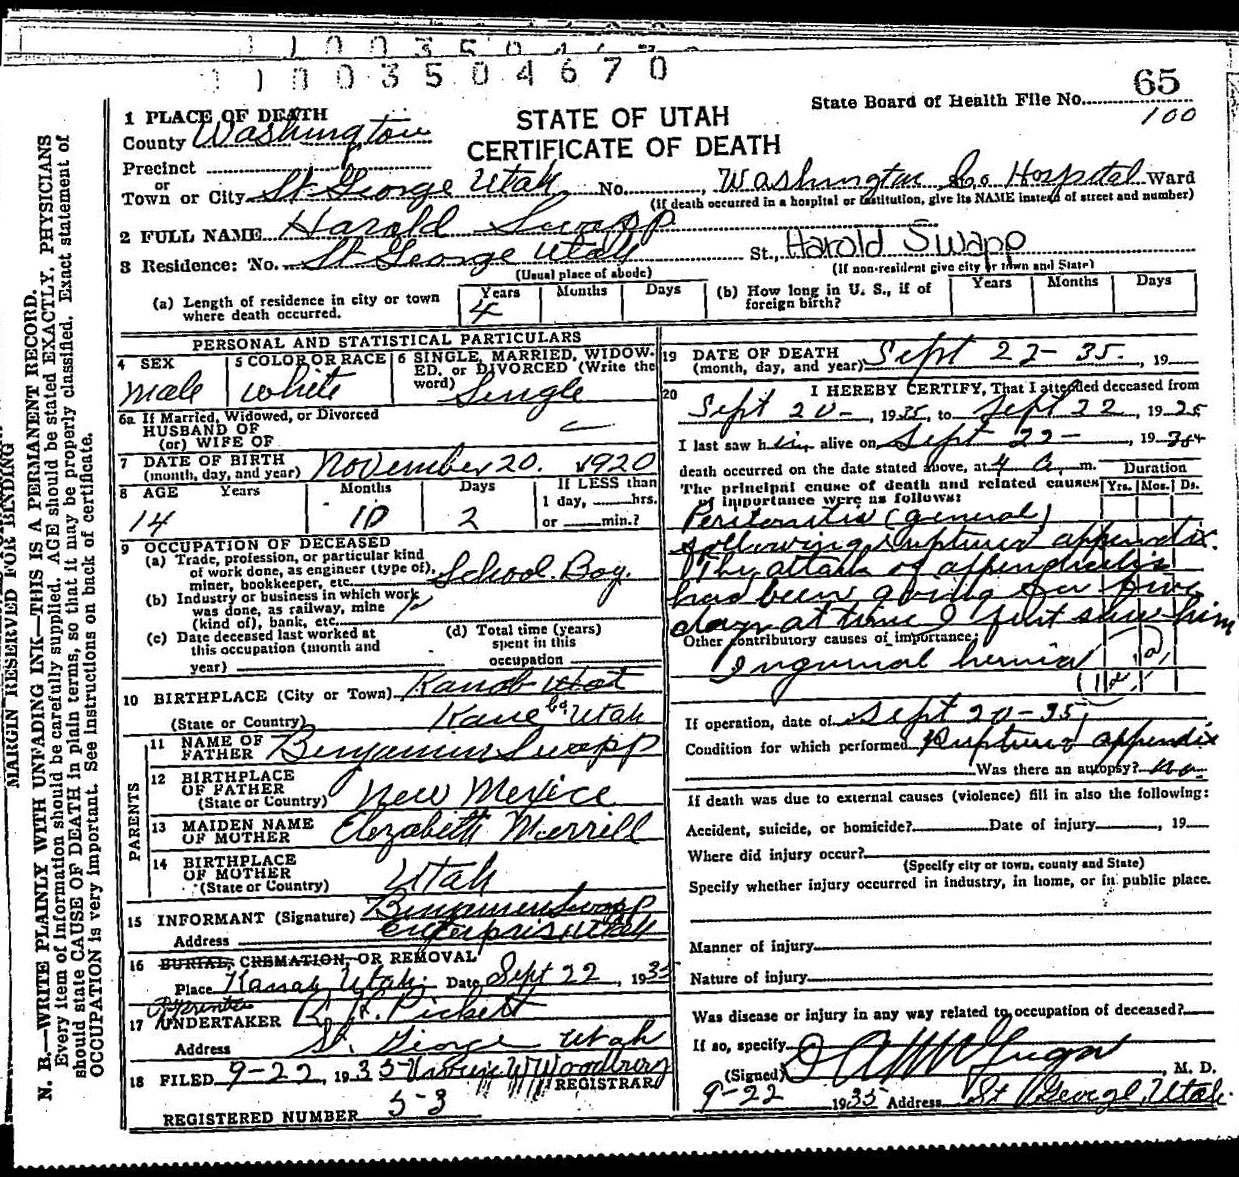 11003504670
65
State Board of Health File No.
100
STATE OF UTAH
CERTIFICATE OF DEATH
1 PLACE OF DEATH
County Washington
Precinct
or
Town or City St George Utah No. , Washington Co Hospital Ward
(If death occurred in a hospital or institution, give its NAME instead of street and number)
2 FULL NAME Harold Swapp
3 Residence: No. St George Utah St., Harold Swapp
(Usual place of abode) (If non-resident give city or town and State)
(a) Length of residence in city or town where death occurred. Years 4 Months Days
(b) How long in U. S., if of foreign birth? Years Months Days
PERSONAL AND STATISTICAL PARTICULARS
4 SEX male
5 COLOR OR RACE white
6 SINGLE, MARRIED, WIDOWED. or DIVORCED (Write the word) Single
6a If Married, Widowed, or Divorced
HUSBAND OF
(or) WIFE OF
7 DATE OF BIRTH
(month, day, and year) November 20. 1920
8 AGE Years 14 Months 10 Days 2 If LESS than
1 day, hrs.
or min.?
9 OCCUPATION OF DECEASED
(a) Trade, profession, or particular kind
of work done, as engineer (type of),
miner, bookkeeper, etc. School Boy.
(b) Industry or business in which work
was done, as railway, mine
(kind of), bank, etc.
(c) Date deceased last worked at
this occupation (month and
year)
(d) Total time (years)
spent in this
occupation
10 BIRTHPLACE (City or Town) Kanab Utah
(State or Country) Kane Co Utah
PARENTS
11 NAME OF
FATHER Benjamin Swapp
12 BIRTHPLACE
OF FATHER
(State or Country) New Mexico
13 MAIDEN NAME
OF MOTHER Elizabeth Merrill
14 BIRTHPLACE
OF MOTHER
(State or Country) Utah
15 INFORMANT (Signature) Benjamin Swapp
Address Enterprise Utah
16 BURIAL, CREMATION, OR REMOVAL
Place Kanab Utah. Date Sept 22, 1935
17 UNDERTAKER Pickett
Address St. George Utah
18 FILED 9-22, 1935 Woodbury
REGISTRAR
REGISTERED NUMBER 53
19 DATE OF DEATH
(month, day, and year) Sept 22-35. , 19
20 I HEREBY CERTIFY, That I attended deceased from
Sept 20-, 1935, to Sept 22, 1935
I last saw him alive on Sept 22-, 19
death occurred on the date stated above, at 4 a. m. Duration
The principal cause of death and related causes Yrs. Mos. Ds.
of importance were as follows:
Peritonitis (general)
following Ruptured appendix.
The attack of appendicitis
had been going for five
days at time I first saw him
Other contributory causes of importance:
Inguinal hernia
If operation, date of Sept 20-35
Condition for which performed Ruptured appendix
Was there an autopsy? no.
If death was due to external causes (violence) fill in also the following:
Accident, suicide, or homicide? Date of injury , 19
Where did injury occur?
(Specify city or town, county and State)
Specify whether injury occurred in industry, in home, or in public place.
Manner of injury
Nature of injury
Was disease or injury in any way related to occupation of deceased?
If so, specify
(Signed) , M. D.
9-22 1935 Address St George, Utah.
MARGIN RESERVED FOR BINDING
N. B.—WRITE PLAINLY WITH UNFADING INK—THIS IS A PERMANENT RECORD.
Every item of information should be carefully supplied. AGE should be stated EXACTLY. PHYSICIANS
should state CAUSE OF DEATH in plain terms, so that it may be properly classified. Exact statement of
OCCUPATION is very important. See instructions on back of certificate.